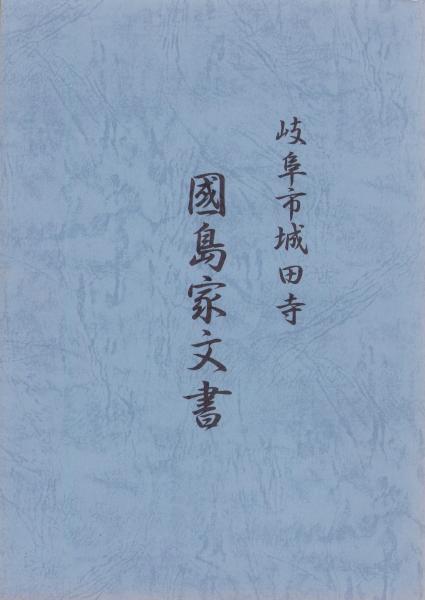 岐阜市城田寺
國島家文書